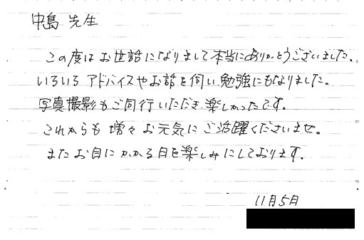 中島 先生
この度はお世話になりまして本当にありがとうございました。
いろいろアドバイスやお話を伺い勉強にもなりました。
写真撮影もご同行いただき楽しかったです。
これからも増々お元気にご活躍くださいませ。
またお目にかかる日を楽しみにしております。
11月5日